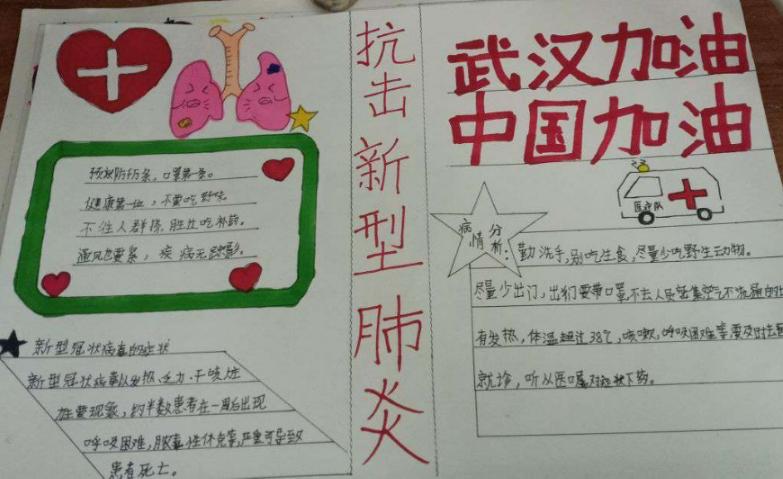 口罩第一条。
健康第一位，不要吃野味。
不往人群挤，胜过吃补药。
通风也要紧，疾病无踪影。
新型冠状病毒的症状
新型冠状病毒以发热、乏力、干咳为
主要现象，约半数患者在一周后出现
呼吸困难，脓毒性休克等，严重可导致
患者死亡。
抗击新型肺炎
武汉加油
中国加油
医疗队
病情分析：
勤洗手，别吃生食，尽量少吃野生动物。
尽量少出门，出门要带口罩，不去人员密集空气不流通的地
有发热，体温超过38℃，咳嗽，呼吸困难等要及时去医
就诊，听从医嘱对症状下药。